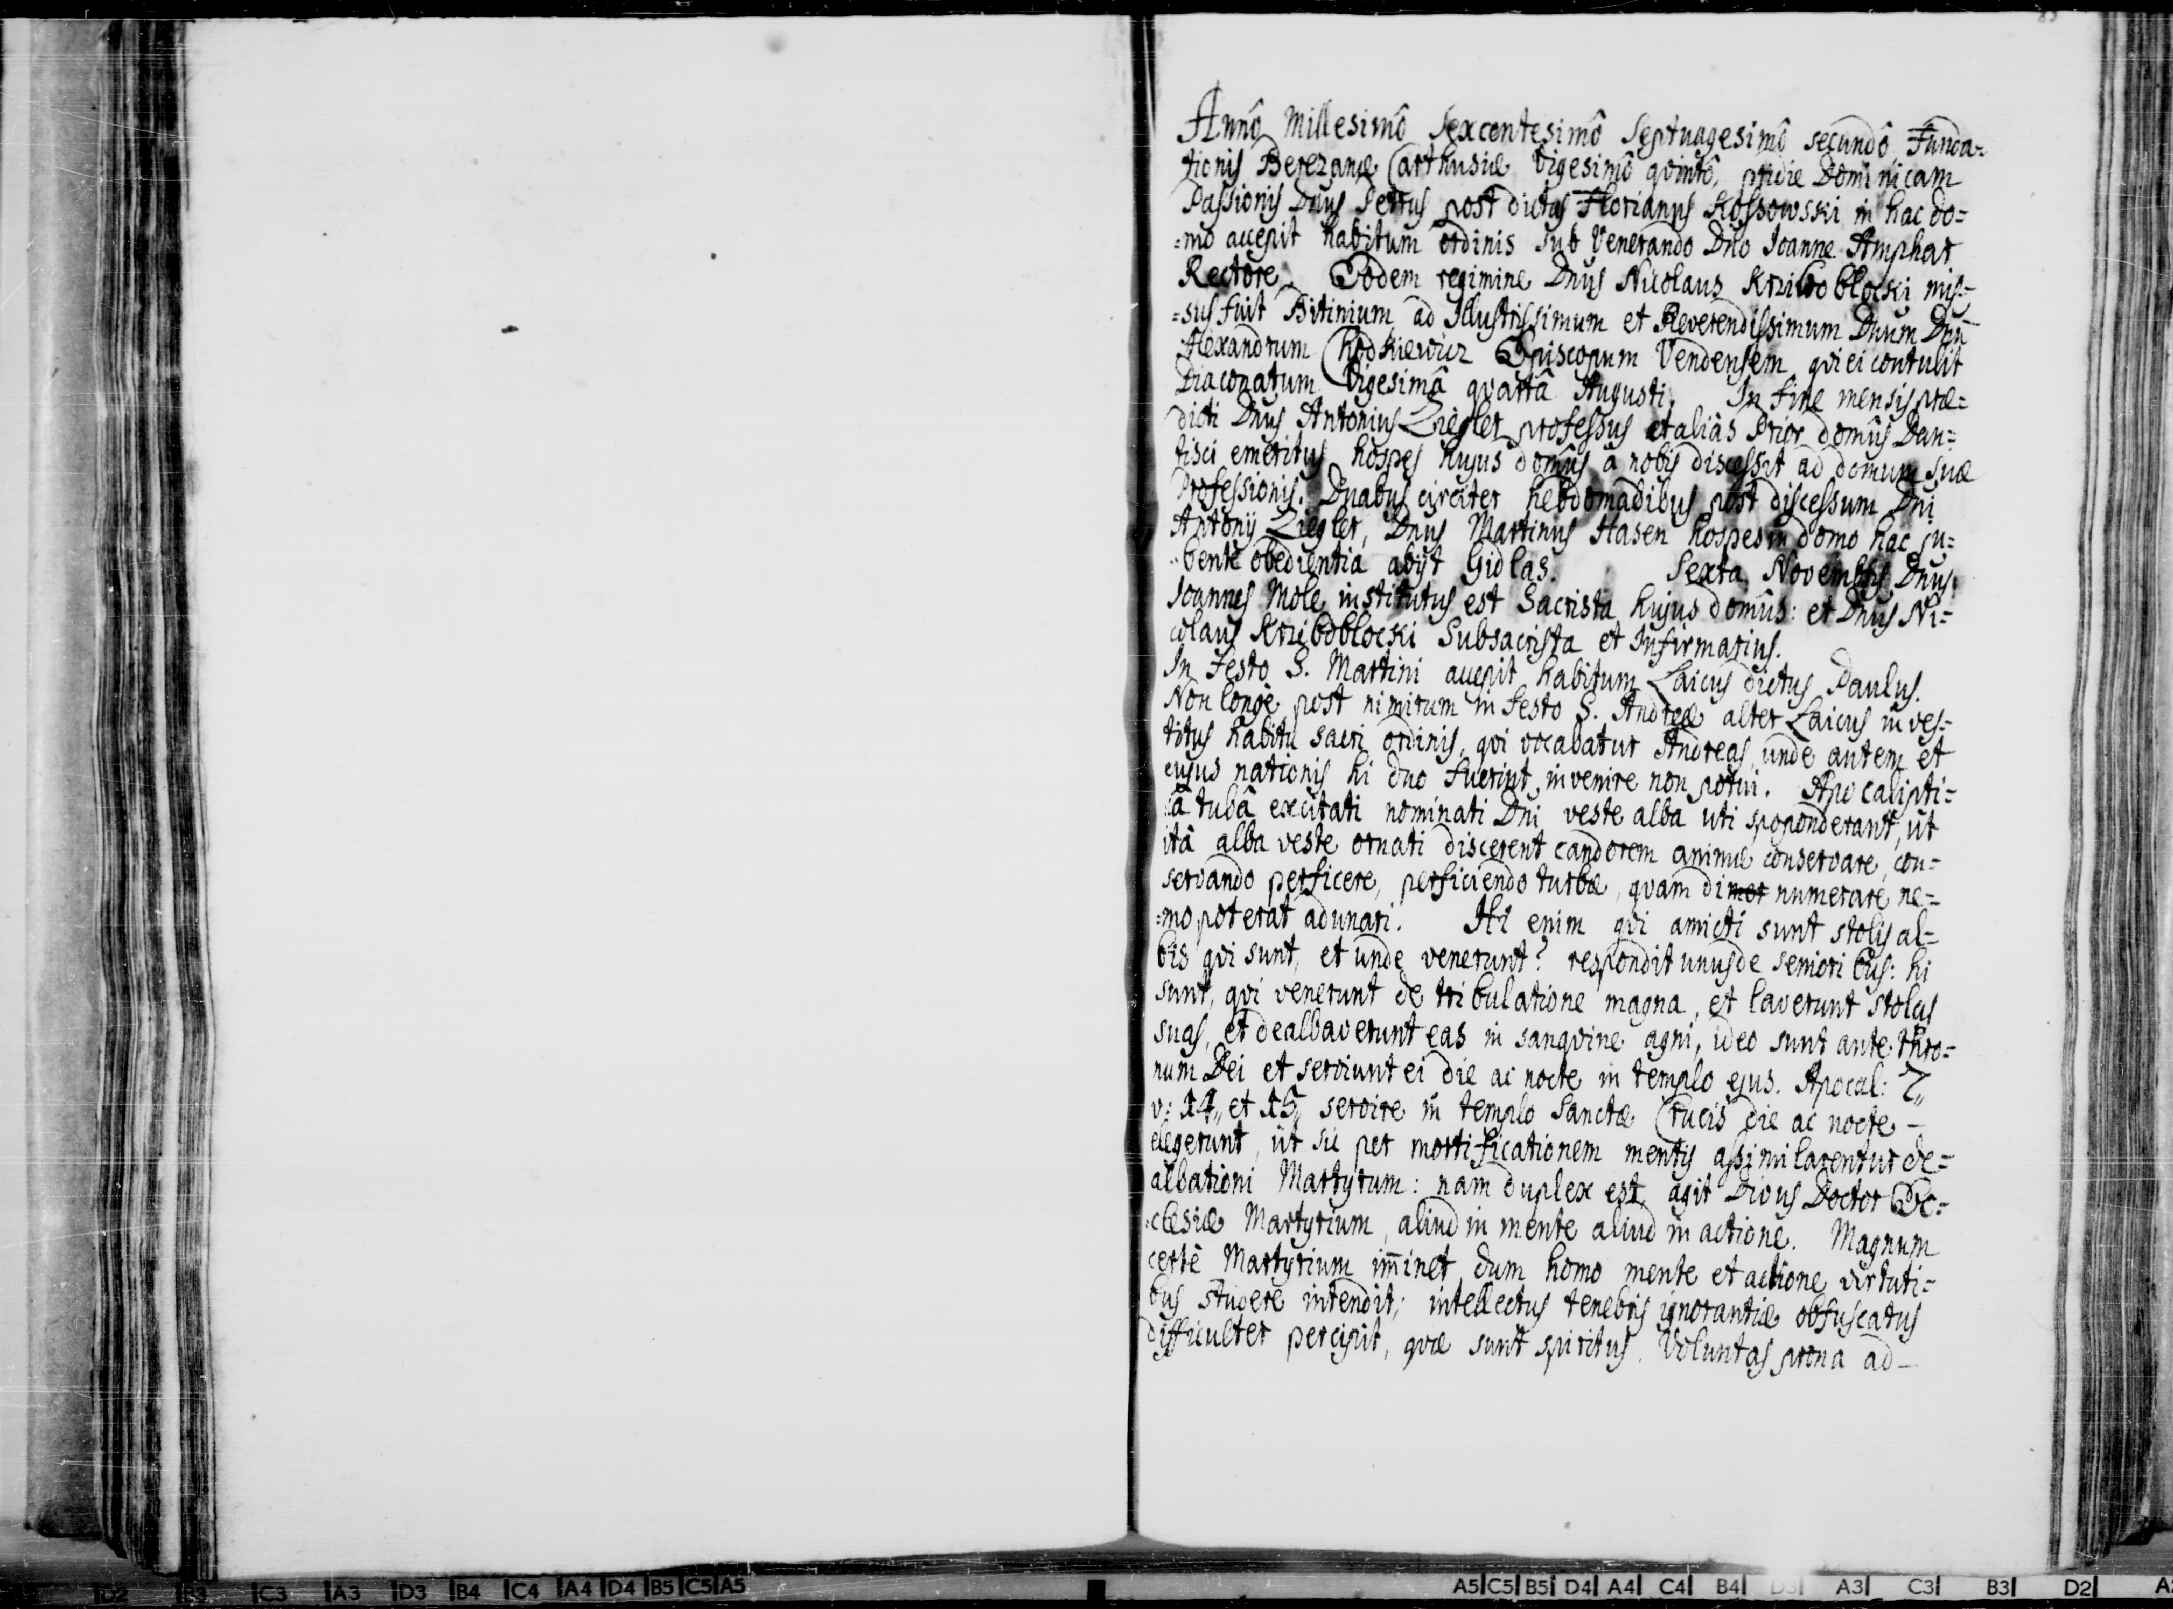 85
Annô Millesimô Sexcentesimô Septuagesimô secundô Funda-
tionis Berezanæ Carthusiæ Vigesimô qvintô, pridie Dominicam
Passionis Dnus Petrus post dictus Florianus Kossowski in hac do=
=mo accepit habitum ordinis sub Venerando Dno Joanne Amphar
Rectore. Eodem regimine Dnus Nicolaus Krziboblocki mis=
=sus fuit Bitinium ad Illustrissimum et Reverendissimum Dnum Dnū
Alexandrum Chodkiewicz Episcopum Vendensem qvi ei contulit
Diaconatum Vigesimâ qvartâ Augusti. In fine mensis præ=
dicti Dnus Antonius Ziegler professus et aliâs Prior domûs Dan=
tisci emeritus hospes hujus domûs à nobis discessit ad domum suæ
Professionis. Duabus circiter hebdomadibus post discessum Dni
Antonij Ziegler, Dnus Martinus Hasen hospes in domo hac ju=
bente obedientia abijt Gidlas. Sexta Novembris Dnus
Joannes Mole institutus est Sacrista hujus domûs: et Dnus Ni=
colaus Krziboblocki Subsacrista et Infirmarius.
In Festo S. Martini accepit habitum Laicus dictus Paulus.
Non longè post nimirum in festo S. Andreæ alter Laicus in ves=
titus habitu sacri ordinis, qvi vocabatur Andreas unde autem et
cujus nationis hi duo fuerint invenire non potui. Apocalipti=
câ tubâ excitati nominati Dni veste alba uti spoponderant, ut
itâ alba veste ornati discerent candorem animæ conservare, con=
servando perficere, perficiendo turbæ, quam dimer numerare ne=
=mo poterat adunari. Hi enim qvi amicti sunt stolis al=
bis qvi sunt, et unde venerunt? respondit unus de senioribus: hi
sunt, qvi venerunt de tribulatione magna, et laverunt stolas
suas, et dealbaverunt eas in sangvine agni, ideo sunt ante thro=
num Dei et serviunt ei die ac nocte in templo ejus. Apocal: 7,,
v: 14,, et 15,, servire in templo Sanctæ Crucis die ac nocte —
elegerunt, ut sic per mortificationem mentis assimilarentur de=
albationi Martyrum: nam duplex est agit Divus Doctor Ec=
=clesiæ Martyrium, aliud in mente aliud in actione. Magnum
certè Martyrium im̄inet dum homo mente et actione virtuti=
bus studere intendit; intellectus tenebris ignorantiæ obfuscatus
difficulter percipit, qvæ sunt spiritus. Voluntas prona ad —
A5 C5 B5 D4 A4 C4 B4 D3 A3 C3 B3 D2
D2 B3 C3 A3 D3 B4 C4 A4 D4 B5 C5 A5